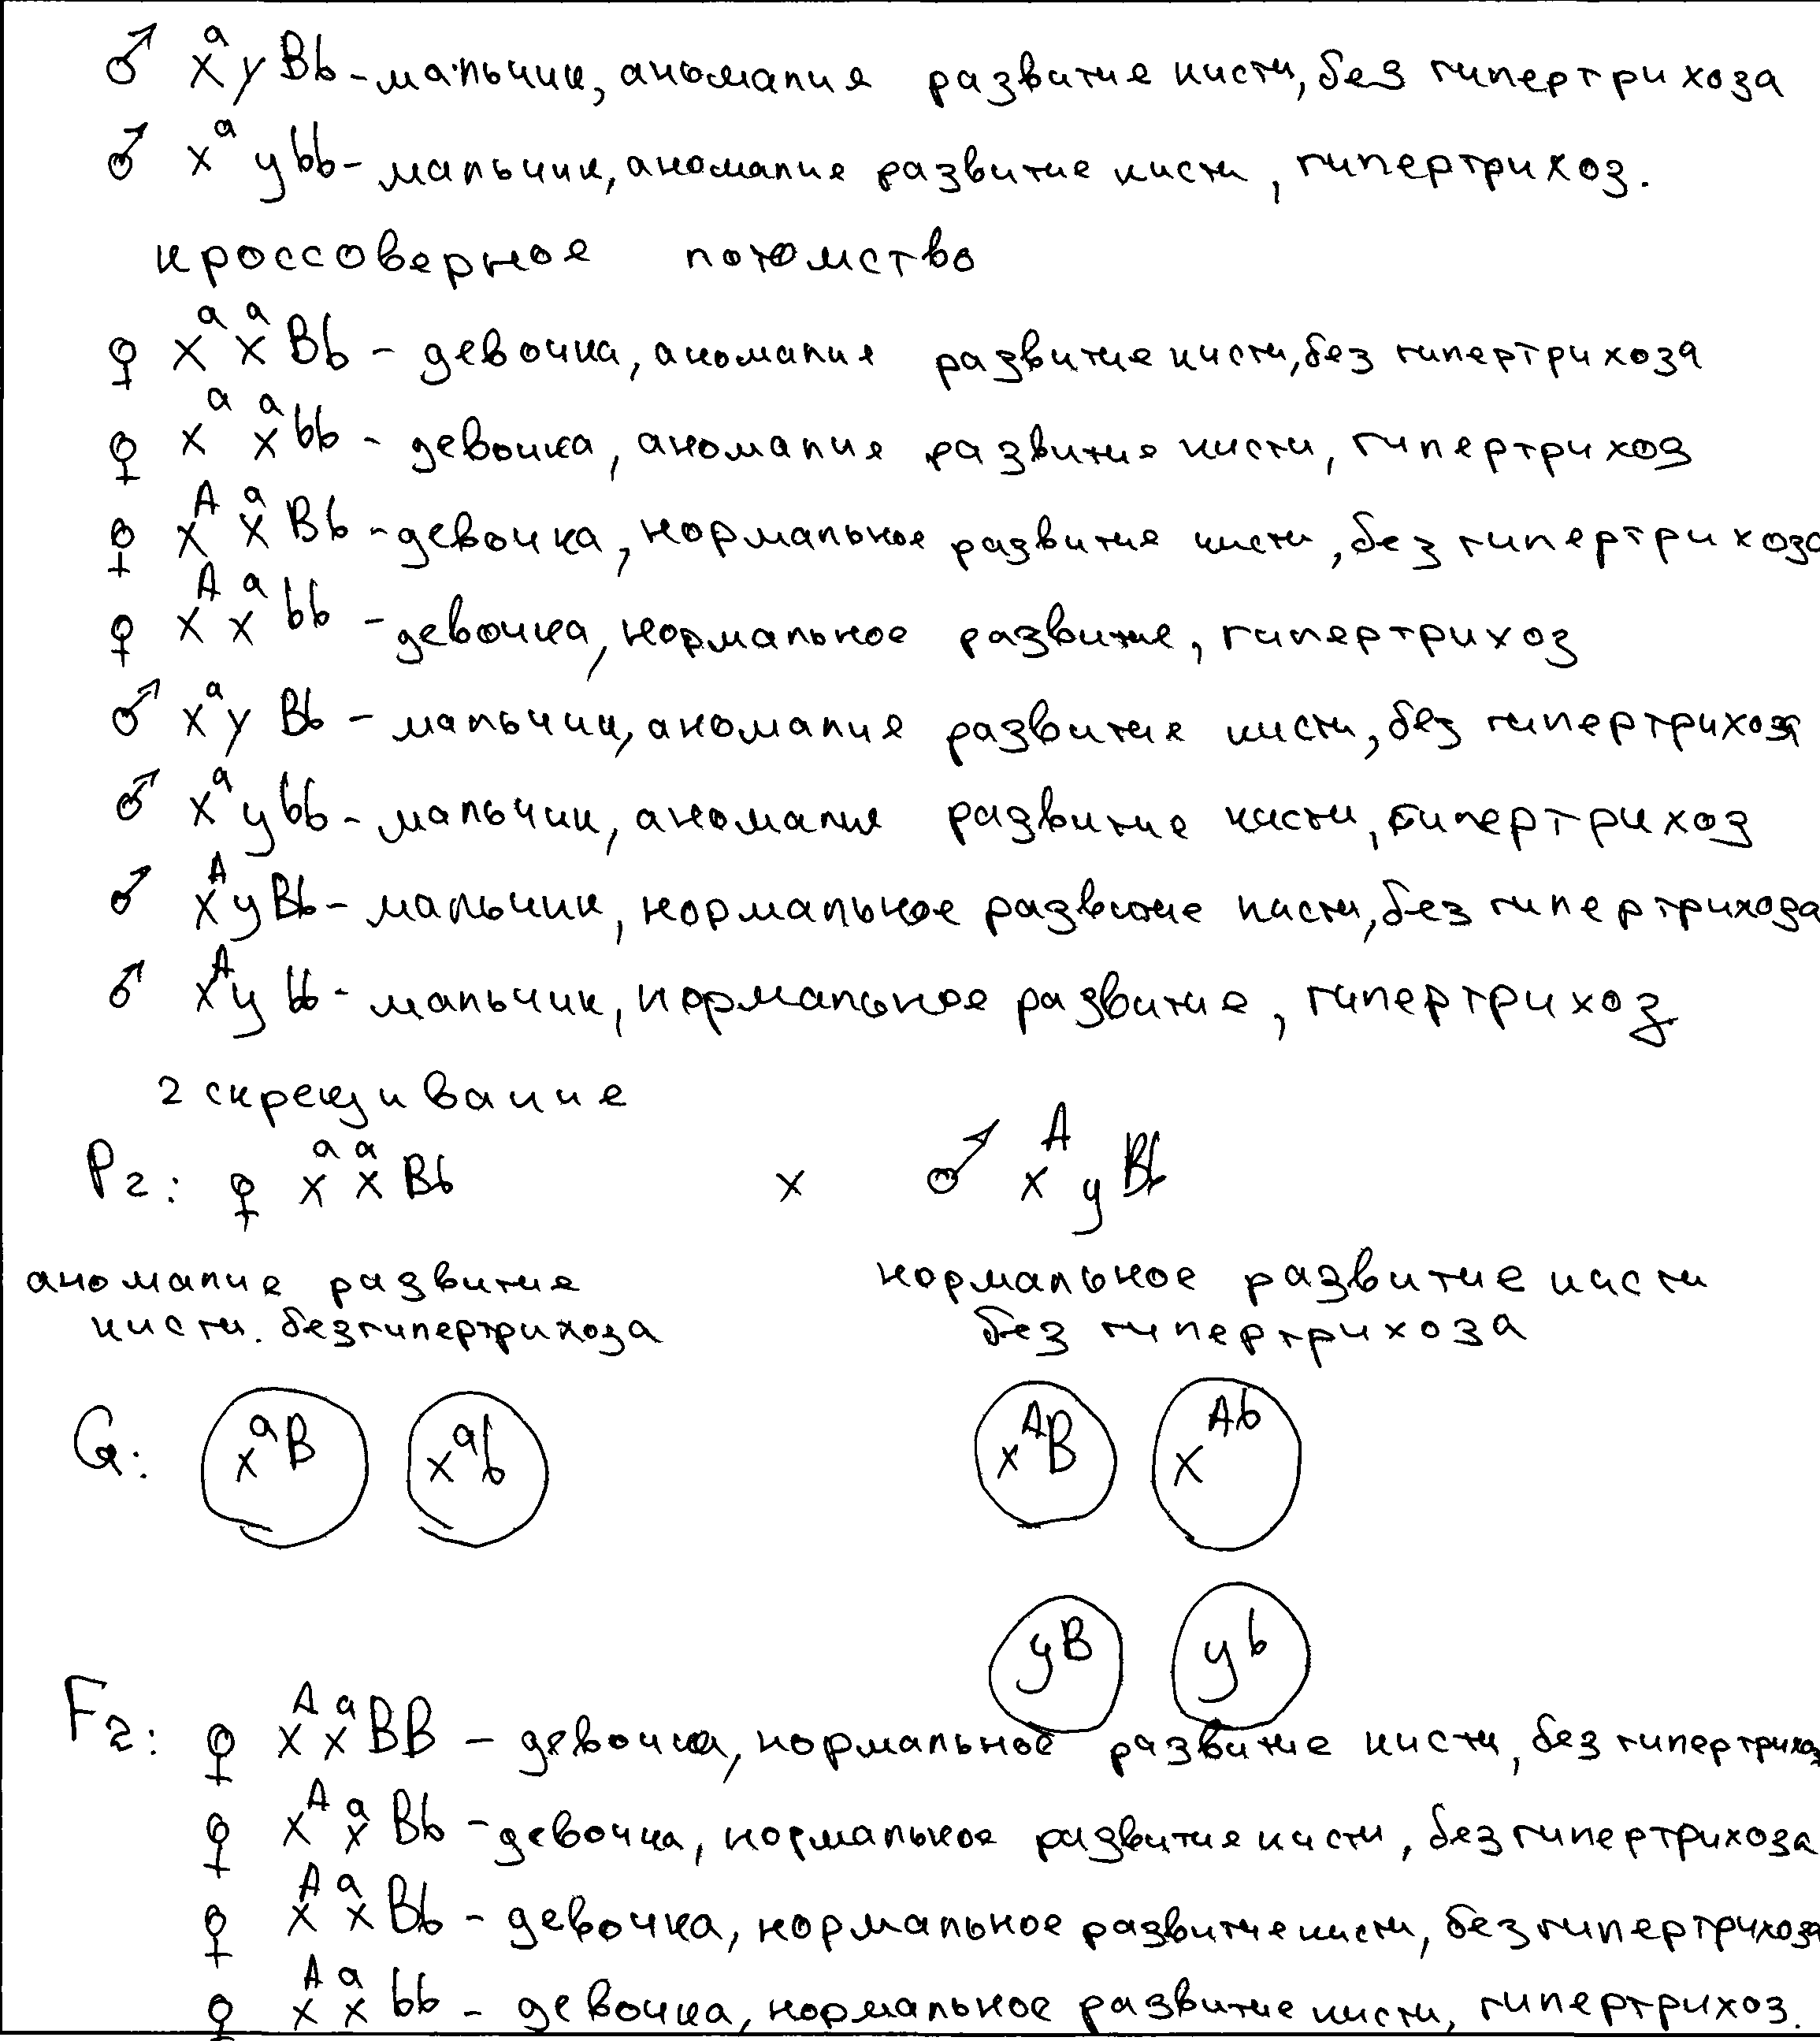 ♂ XᵃyBb - мальчик, аномалия развитие кисти, без гипертрихоза
♂ Xᵃybb - мальчик, аномалие развитие кисти, гипертрихоз.
кроссоверное потомство
♀ XᵃXᵃBb - девочка, аномалие развитие кисти, без гипертрихоза
♀ XᵃXᵃbb - девочка, аномалие развитие кисти, гипертрихоз
♀ XᴬXᵃBb - девочка, нормальное развитие кисти, без гипертрихоза
♀ XᴬXᵃbb - девочка, нормальное развитие, гипертрихоз
♂ Xᵃy Bb - мальчик, аномалие развитие кисти, без гипертрихоза
♂ Xᵃybb - мальчик, аномалие развитие кисти, гипертрихоз
♂ XᴬyBb - мальчик, нормальное развитие кисти, без гипертрихоза
♂ Xᴬybb - мальчик, нормальное развитие, гипертрихоз
2 скрещивание
P₂: ♀ XᵃXᵃBb x ♂ XᴬyBb
аномалие развитие нормальное развитие кисти
кисти. без гипертрихоза без гипертрихоза
G: XᵃB Xᵃb XᴬB Xᴬb
yB yb
F₂: ♀ XᴬXᵃBB - девочка, нормальное развитие кисти, без гипертрихоз
♀ XᴬXᵃBb - девочка, нормальное развитие кисти, без гипертрихоза
♀ XᴬXᵃBb - девочка, нормальное развитие кисти, без гипертрихоза
♀ XᴬXᵃbb - девочка, нормальное развитие кисти, гипертрихоз.